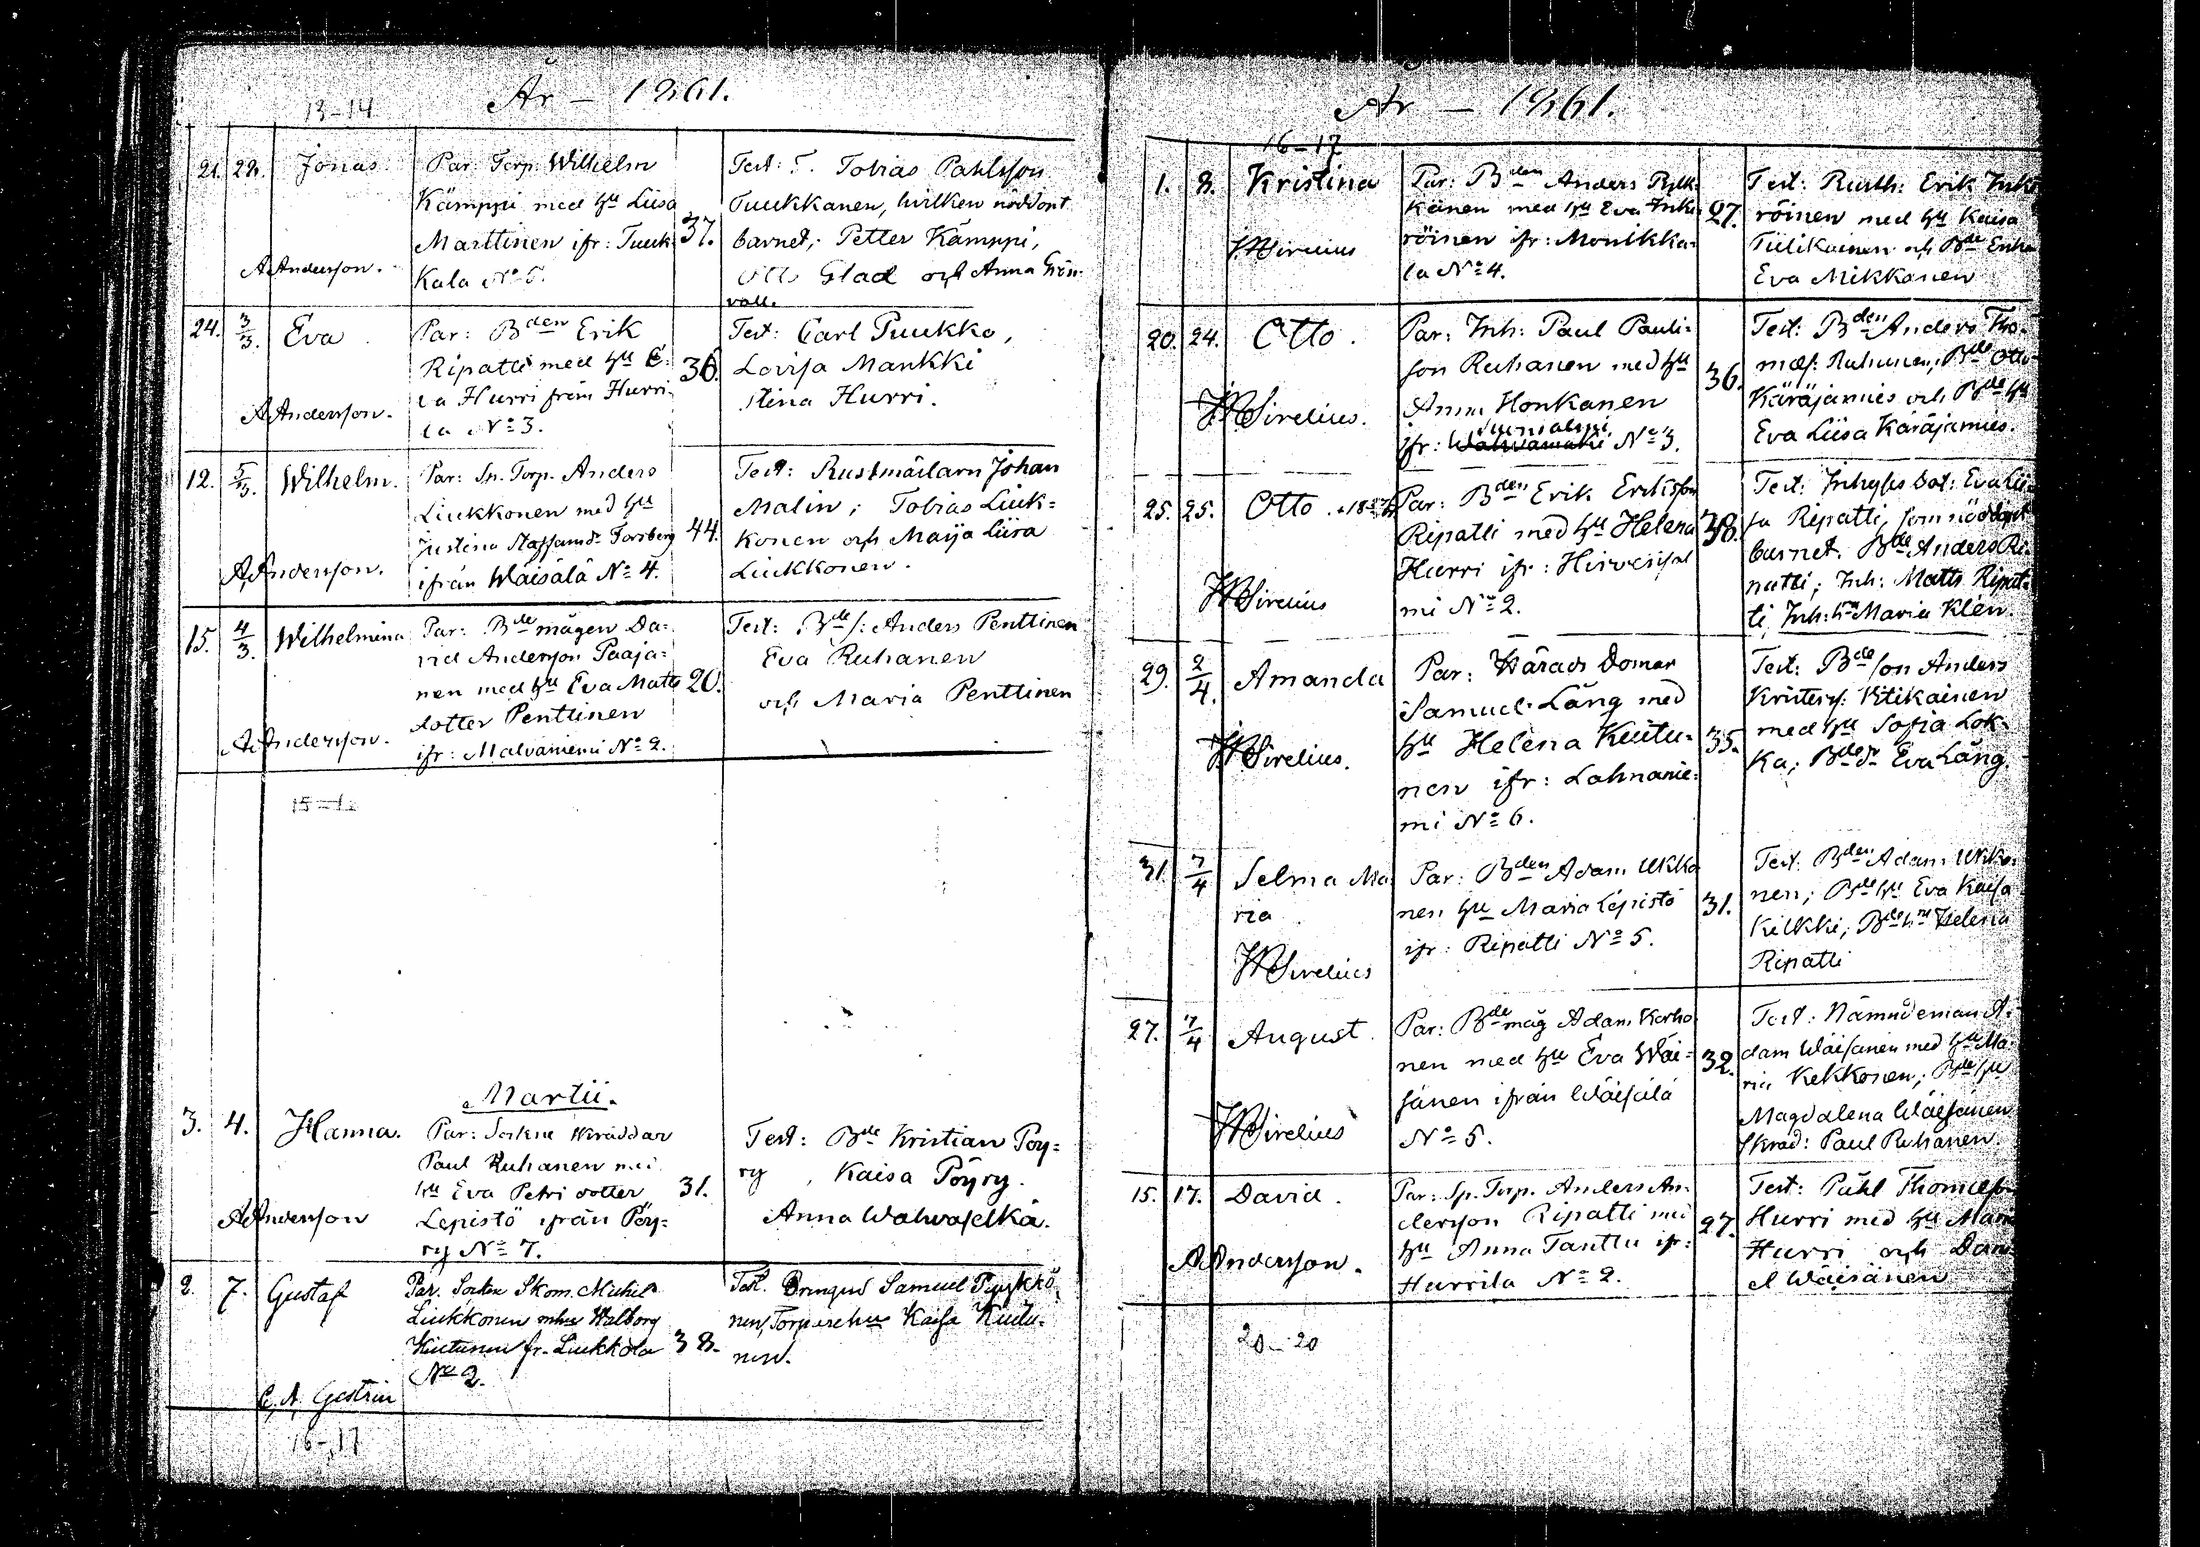 År – 1861.
13–14
21. 22. Jonas
Par: Torp. Wilhelm
Kämppi med hu Liisa
Marttinen ifr: Tuuk-
kala No 5.
37.
Test: Tobias Pahlsson
Tuukkanen, hvilken nöddöpt
barnet; Petter Kämppi,
Otto Glad och Anna Grön-
vall.
A Andersson.
24. 3/3. Eva
Par: Bden Erik
Ripatti med hu E-
va Hurri från Hurri-
la No 3.
36.
Test: Carl Puukko,
Lovisa Mankki
Stina Hurri.
A Andersson.
12. 5/3. Wilhelm.
Par: Sn. Torp. Anders
Liukkonen med hu
Justina Staffansdr Forsberg
ifrån Wäisälä No 4.
44.
Test: Rustmästarn Johan
Malin; Tobias Liuk-
konen och Maija Liisa
Liukkonen.
A Andersson.
15. 4/3. Wilhelmina
Par: Bde mågen Da-
vid Andersson Paaja-
nen med hu Eva Matts
dotter Penttinen
ifr: Malvaniemi No 2.
20.
Test: Bde s: Anders Penttinen
Eva Ruhanen
och Maria Penttinen
A Andersson.
Martii.
3. 4. Hanna.
Par: Sockne Skräddar
Paul Ruhanen med
hu Eva Petri dotter
Lepistö ifrån Pöy-
ry No 7.
31.
Test: Bde Kristian Pöy-
ry, Kaisa Pöyry.
Anna Wahvaselkä.
A Andersson
2. 7. Gustaf
Par. Socken Skom. Michel
Liukkonen mhu Walborg
Kuitunen fr. Liukkola
No 2.
38.
Test. Drengen Samuel Pyykkö-
nen, Torparehu Kaisa Kuitu-
nen.
C. A. Gestrin
16–17
År – 1861.
16–17
1. 8. Kristina
Par: Bden Anders Pylk-
känen med hu Eva Inke-
röinen ifr: Monikka-
la No 4.
27.
Test: Rusth: Erik Inke
röinen med hu Kaisa
Tiilikainen och Bde Enka
Eva Mikkonen
Sirelius
20. 24. Otto.
Par: Inh: Paul Pauli-
son Ruhanen med hu
Anna Honkanen
ifr: No 3.
36.
Test: Bden Anders Tho-
mæs: Ruhanen; Bde Otto
Käräjämies och Bde hu
Eva Liisa Käräjämies.
Sirelius.
25. 25. Otto.
Par: Bden Erik Eriksson
Ripatti med hu Helena
Hurri ifr: Hirvensal
mi No 2.
38.
Test: Inhyses dot: Eva Lii-
sa Ripatti, som nöddöpt
barnet. Bde Anders Ri-
patti; Inh: Matts Ripat-
ti, Inh: hu Maria Klén.
Sirelius
29. 2/4. Amanda
Par: Härads Domar
Samuel Lång med
hu Helena Kuitu-
nen ifr: Lahnanie-
mi No 6.
35.
Test: Bde son Anders
Kristers: Kitikainen
med hu Sofia Lok-
ka; Bde dr Eva Lång.
Sirelius.
31. 7/4 Selma Ma
ria
Par: Bden Adam Ukko
nen hu Maria Lepistö
ifr: Ripatti No 5.
31.
Test: Bden Adam Ukko-
nen; Bde hu Eva Kaisa
Kilkki; Bde hu Helena
Ripatti
Sirelius
27. 7/4 August.
Par: Bde måg Adam Korho
nen med hu Eva Wäi-
sänen ifrån Wäisälä
No 5.
32.
Test: Nämndeman A-
dam Wäisänen med hu Ma-
ria Kekkonen; Bde hu
Magdalena Wäisänen
Skräd: Paul Ruhanen.
Sirelius
15. 17. David.
Par: Sp. Torp. Anders An-
dersson Ripatti med
hu Anna Tanttu ifr:
Hurrila No 2.
27.
Test: Påhl Thomæson
Hurri med hu Maria
Hurri och Dani-
el Wäisänen
A Andersson.
20–20